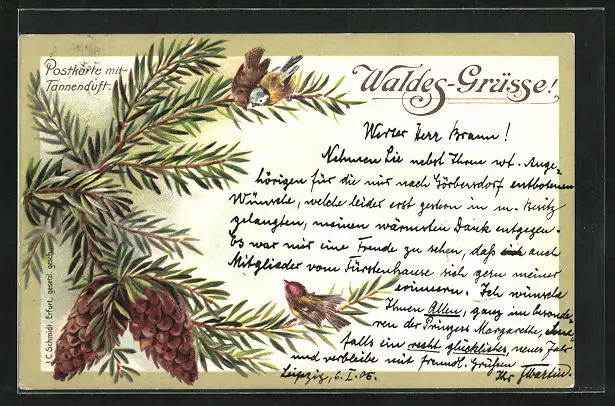 Postkarte mit
Tannenduft.
Waldes-Grüsse!
Werter Herr Braun!
Nehmen Sie nebst Ihren wt. Ange-
hörigen für die mir nach Görbersdorf entbotenen
Wünsche, welche leider erst gestern in m. Besitz
gelangten, meinen wärmsten Dank entgegen.
Es war mir eine Freude zu sehen, daß auch
Mitglieder vom Fürstenhause sich gern meiner
erinnern. Ich wünsche
Ihnen Allen, ganz im besonde-
ren der Prinzess Margarethe,
falls ein recht glückliches, neues Jahr
und verbleibe mit freundl. Grüßen
Leipzig, 6. I. 06. Ihr Martin.
J.C. Schmidt, Erfurt, gesetzl. gesch.